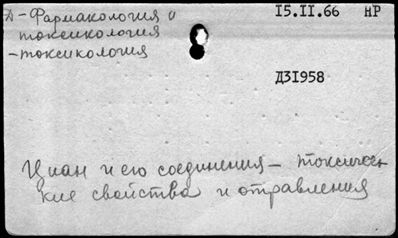 Д - Фармакология и
токсикология
- токсикология
15.II.66 НР
ДЗI958
Циан и его соединения – токсичес-
кие свойства и отравления